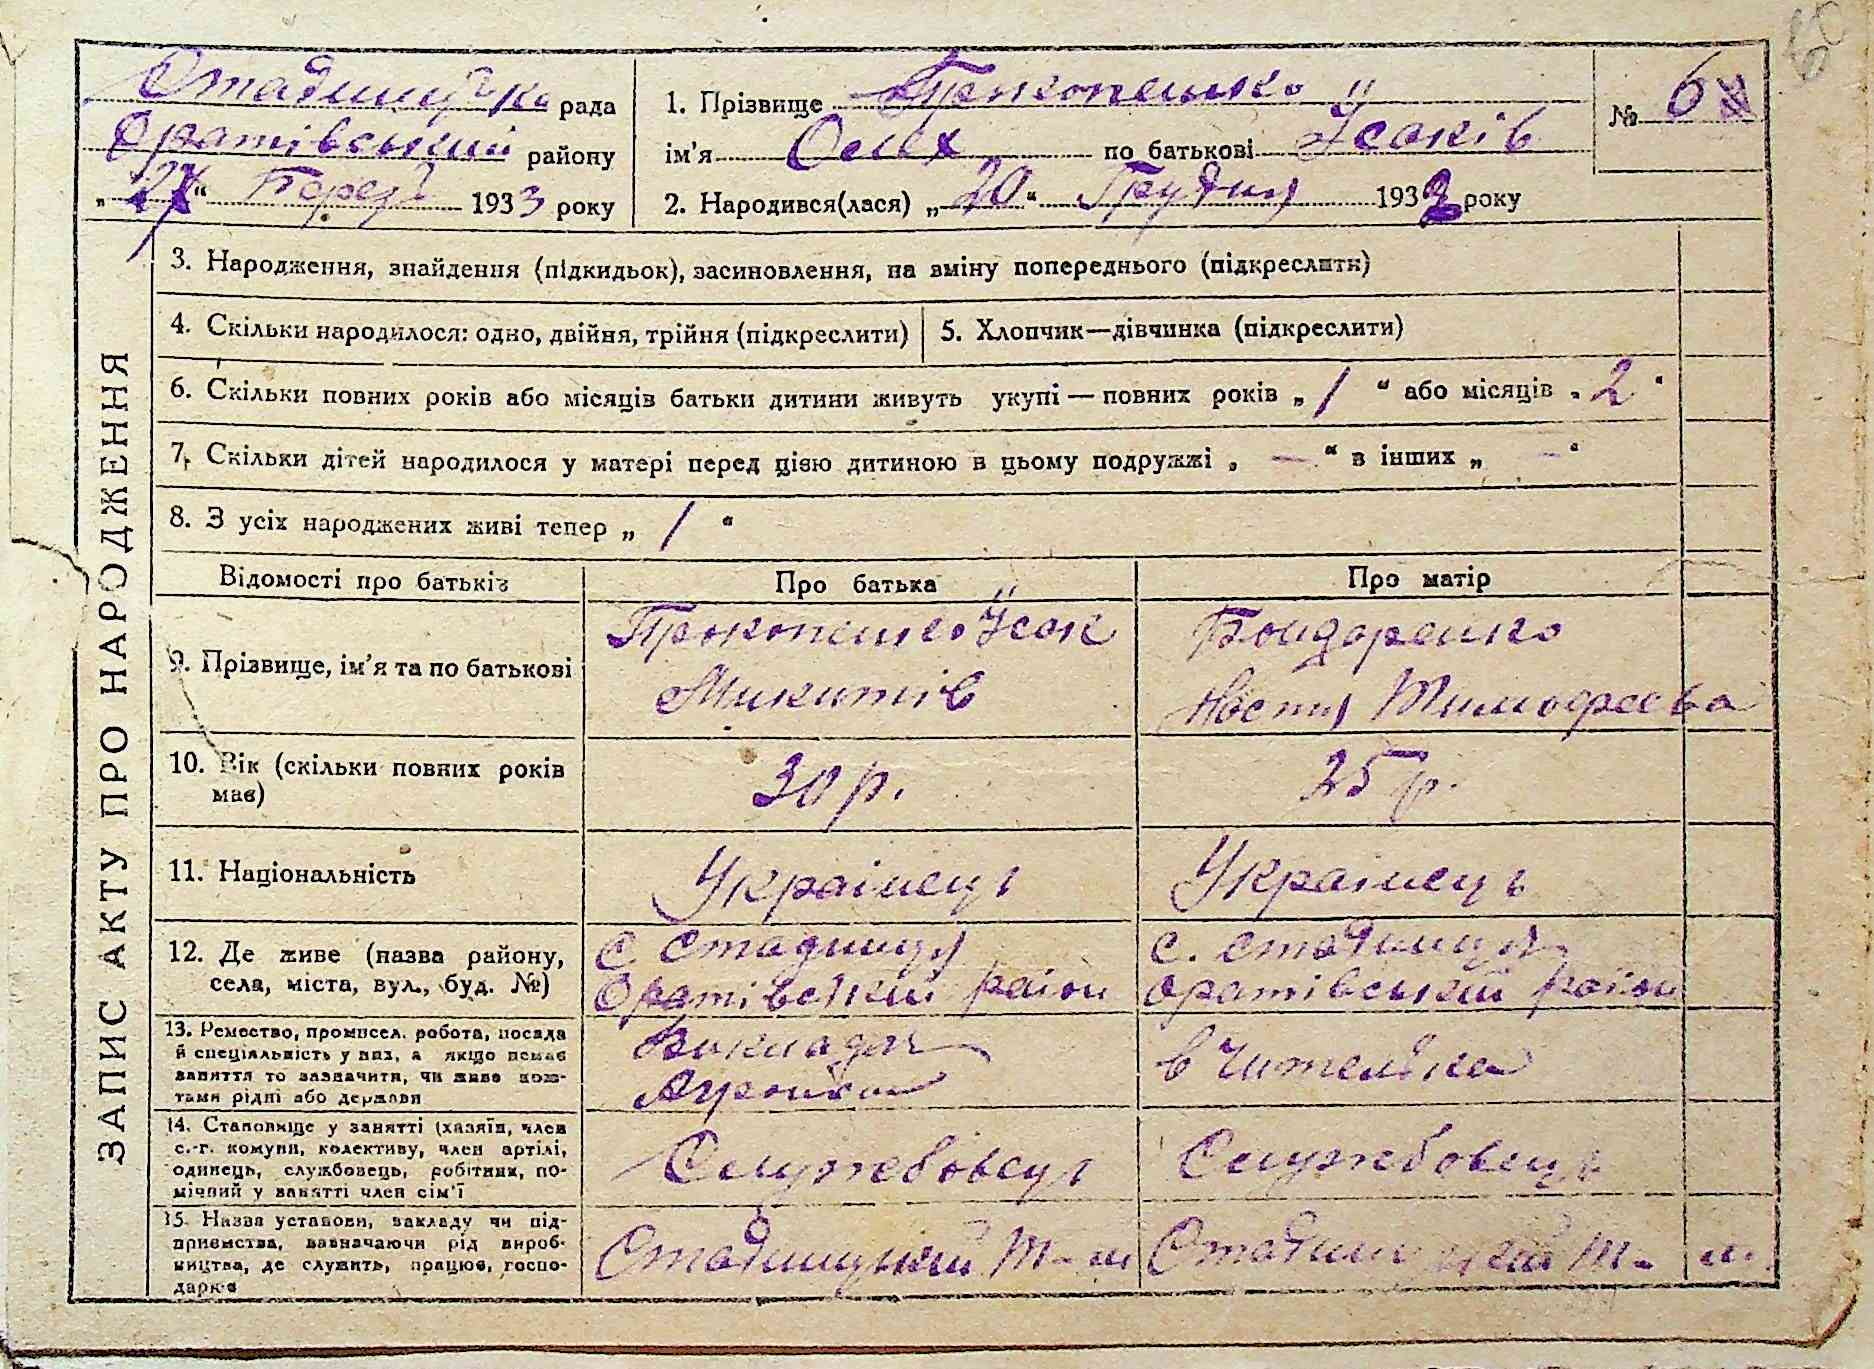 60
Стадницька рада
Оратівський району
„27“ Берез 1933 року
1. Прізвище Прокопенко
ім’я Олех по батькові Їсаків
2. Народився(лася) „20“ Грудня 1932 року
№ 6
ЗАПИС АКТУ ПРО НАРОДЖЕННЯ
3. Народження, знайдення (підкидьок), засиновлення, на зміну попереднього (підкреслити)
4. Скільки народилося: одно, двійня, трійня (підкреслити)
5. Хлопчик—дівчинка (підкреслити)
6. Скільки повних років або місяців батьки дитини живуть укупі — повних років „1“ або місяців „2“
7. Скільки дітей народилося у матері перед цією дитиною в цьому подружжі „—“ в інших „—“
8. З усіх народжених живі тепер „1“
Відомості про батьків
Про батька
Про матір
9. Прізвище, ім’я та по батькові
Прокопенко Їсак
Микитів
Бондаренко
Настя Тимофеєва
10. Вік (скільки повних років
має)
30 р.
25 р.
11. Національність
Українець
Українець
12. Де живе (назва району,
села, міста, вул., буд. №)
с Стадниця
Оратівський район
с. Стадниця
Оратівський район
13. Ремество, промисел, робота, посада
й спеціальність у них, а якщо немає
заняття то зазначити, чи живе кош-
тами рідні або держави
Викладач
Агроном
вчителька
14. Становище у занятті (хазяїн, член
с.-г. комуни, колективу, член артілі,
одинець, службовець, робітник, по-
мічний у занятті член сім’ї
Службовець
Службовець
15. Назва установи, закладу чи під-
приємства, зазначаючи рід вироб-
ництва, де служить, працює, госпо-
дарює
Стадницький Т-м
Стадницький Т-м